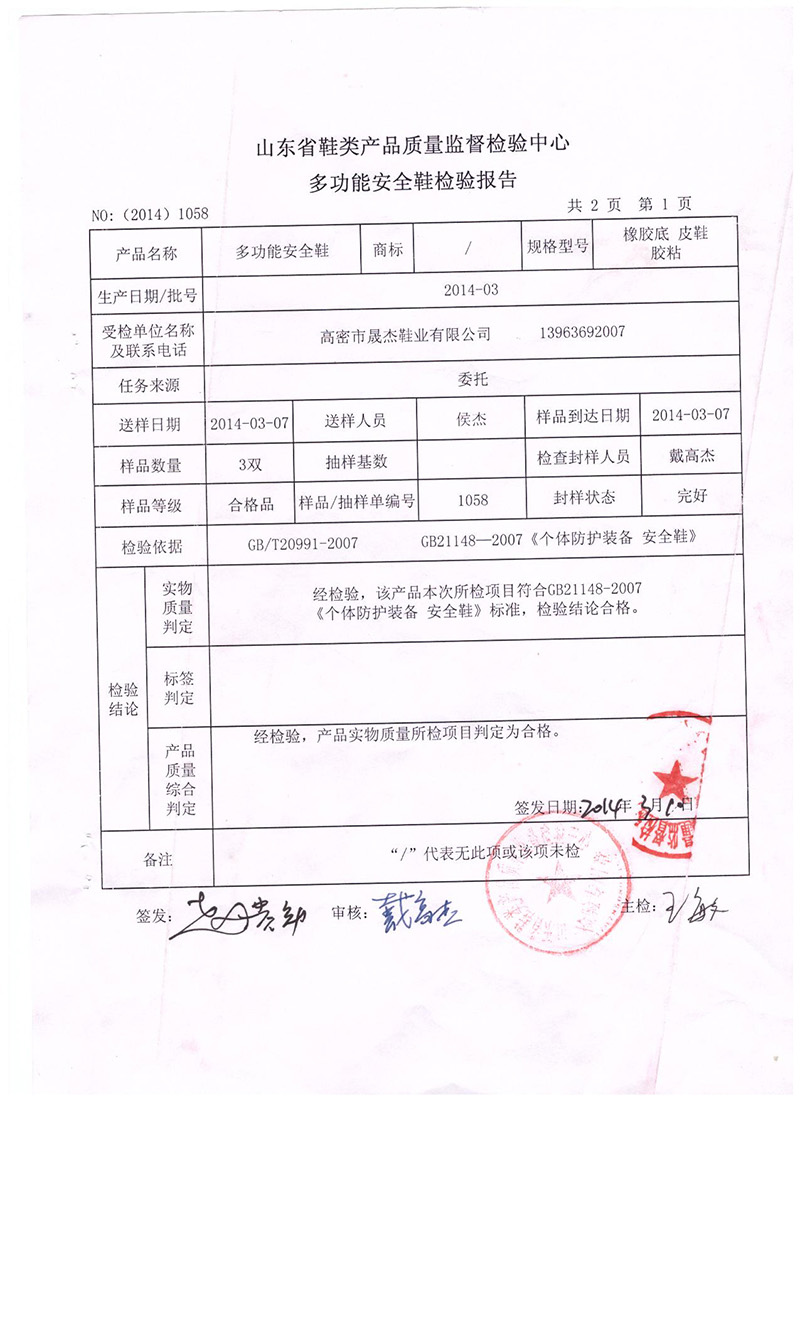 山东省鞋类产品质量监督检验中心
多功能安全鞋检验报告
NO:（2014）1058
共 2 页 第 1 页
产品名称 多功能安全鞋 商标 / 规格型号 橡胶底 皮鞋
胶粘
生产日期/批号 2014-03
受检单位名称
及联系电话
高密市晟杰鞋业有限公司 13963692007
任务来源 委托
送样日期 2014-03-07 送样人员 侯杰 样品到达日期 2014-03-07
样品数量 3双 抽样基数 检查封样人员 戴高杰
样品等级 合格品 样品/抽样单编号 1058 封样状态 完好
检验依据 GB/T20991-2007 GB21148—2007《个体防护装备 安全鞋》
检验
结论
实物
质量
判定
经检验，该产品本次所检项目符合GB21148-2007
《个体防护装备 安全鞋》标准，检验结论合格。
标签
判定
产品
质量
综合
判定
经检验，产品实物质量所检项目判定为合格。
签发日期:2014年3月10日
备注 “/”代表无此项或该项未检
签发: 审核:戴高杰 主检:王敏